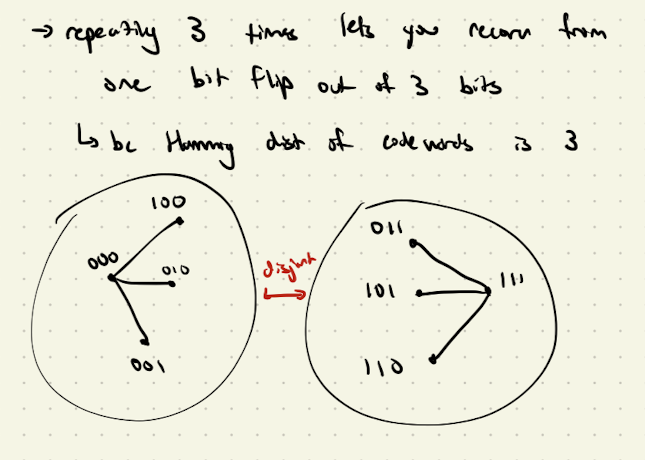 → repeating 3 times lets you recover from
one bit flip out of 3 bits
↳ bc Hamming dist of codewords is 3
100
000
010
001
disjoint
011
101
111
110